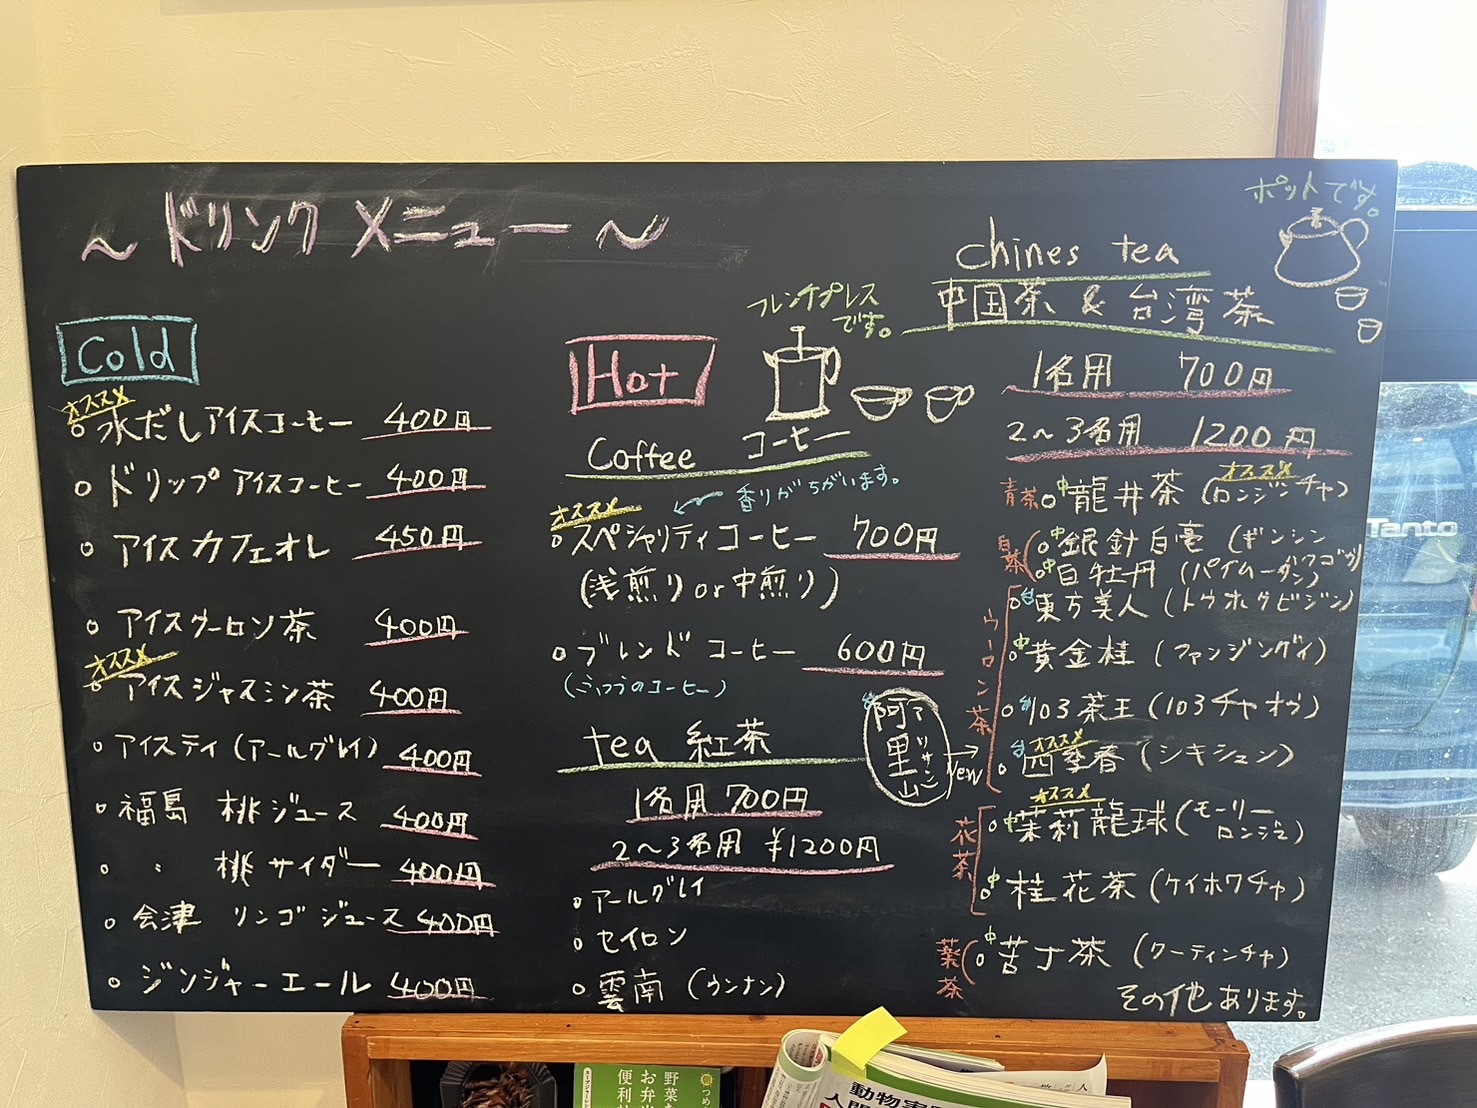 ～ドリンクメニュー～
Cold
オススメ
水だしアイスコーヒー 400円
ドリップアイスコーヒー 400円
アイスカフェオレ 450円
アイスウーロン茶 400円
オススメ
アイスジャスミン茶 400円
アイスティ(アールグレイ) 400円
福島 桃ジュース 400円
〃 桃サイダー 400円
会津 リンゴジュース 400円
ジンジャーエール 400円
Hot
フレンチプレス
です。
Coffee コーヒー
香りがちがいます。
オススメ
スペシャリティコーヒー 700円
(浅煎り or 中煎り)
ブレンドコーヒー 600円
(ふつうのコーヒー)
tea 紅茶
1名用 700円
2～3名用 ¥1200円
アールグレイ
セイロン
雲南 (ウンナン)
台
阿里山
アリサン
New
ポットです。
chines tea
中国茶 & 台湾茶
1名用 700円
2～3名用 1200円
オススメ
青茶 中 龍井茶 (ロンジンチャ)
白茶 中 銀針白毫 (ギンシン
バクゴウ)
中 白牡丹 (パイムータン)
ウーロン茶
台 東方美人 (トウホウビジン)
中 黄金桂 (ファンジングイ)
台 103茶王 (103チャオウ)
オススメ
台 四季春 (シキシュン)
花茶
オススメ
中 茉莉龍球 (モーリー
ロンジュ)
中 桂花茶 (ケイホワチャ)
薬茶 中 苦丁茶 (クーティンチャ)
その他あります。
Tanto
野菜
お弁当
便利
つめ
動物実
人間